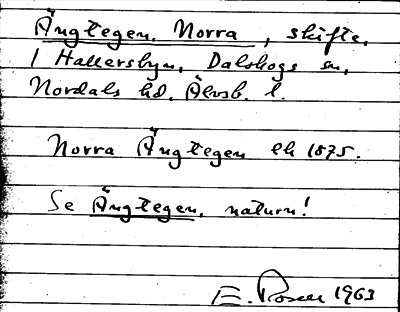 Ängtegen, Norra, skifte,
i Hallersbyn, Dalskogs sn,
Nordals hd, Älvsb. l.
Norra Ängtegen ek 1875.
Se Ängtegen, naturn!
E. Rosell 1963